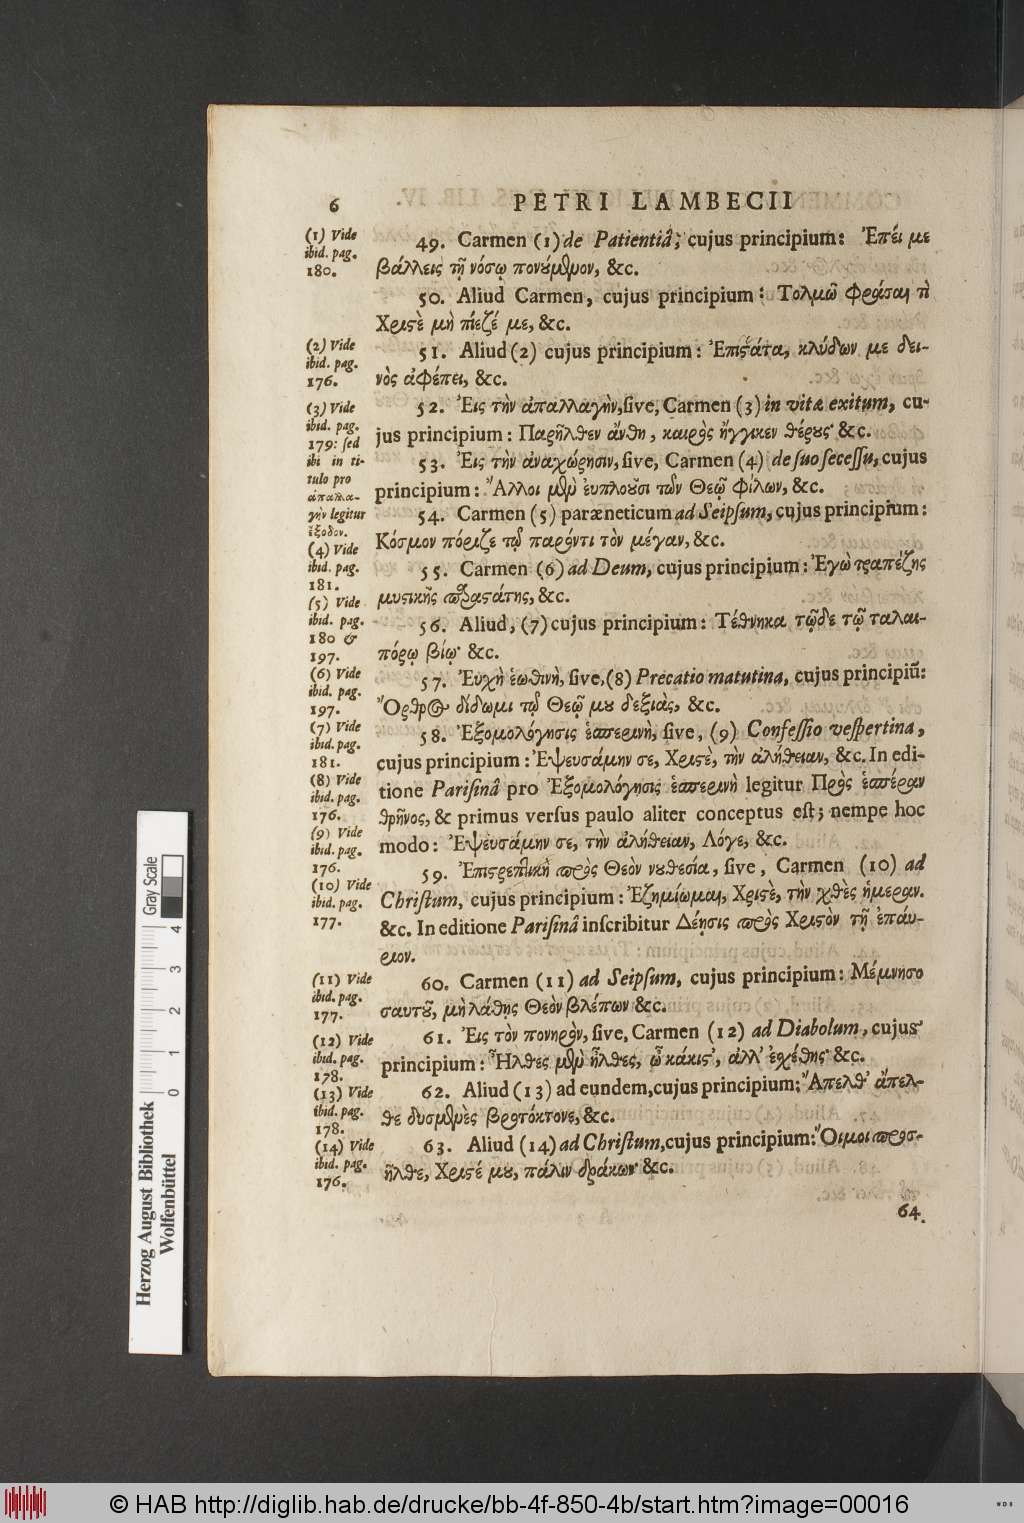 6
PETRI LAMBECII
49. Carmen (1) de Patientiâ; cujus principium: Ἐπεί με
βάλλεις τῇ νόσῳ πονούμενον, &c.
50. Aliud Carmen, cujus principium: Τολμῶ φράσαι τὶ
Χριστὲ μὴ πίεζέ με, &c.
51. Aliud (2) cujus principium: Ἐπιστάτα, κλύδων με δει-
νὸς ἀφέπει, &c.
52. Ἐις τὴν ἀπαλλαγὴν, sive, Carmen (3) in vitæ exitum, cu-
jus principium: Παρῆλθεν ἄνθη, καιρὸς ἤγγικεν θέρους· &c.
53. Ἐις τὴν ἀναχώρησιν, sive, Carmen (4) de suo secessu, cujus
principium: Ἄλλοι μὲν ἐυπλοῦσι τῶν Θεῷ φίλων, &c.
54. Carmen (5) paræneticum ad Seipsum, cujus principium:
Κόσμον πόριζε τῷ παρόντι τὸν μέγαν, &c.
55. Carmen (6) ad Deum, cujus principium: Ἐγὼ τραπέζης
μυστικῆς παραστάτης, &c.
56. Aliud, (7) cujus principium: Τέθνηκα τῷδε τῷ ταλαι-
πόρῳ βίῳ· &c.
57. Ἐυχὴ ἑωθινὴ, sive, (8) Precatio matutina, cujus principiũ:
Ὄρθρος δίδωμι τῷ Θεῷ μου δεξιὰς, &c.
58. Ἐξομολόγησις ἑσπερινὴ, sive, (9) Confessio vespertina,
cujus principium: Ἐψευσάμην σε, Χριστὲ, τὴν ἀλήθειαν, &c. In edi-
tione Parisinâ pro Ἐξομολόγησις ἑσπερινὴ legitur Πρὸς ἑσπέραν
θρῆνος, & primus versus paulo aliter conceptus est; nempe hoc
modo: Ἐψευσάμην σε, τὴν ἀλήθειαν, Λόγε, &c.
59. Ἐπιστρεπτικὴ πρὸς Θεὸν νουθεσία, sive, Carmen (10) ad
Christum, cujus principium: Ἐζημίωμαι, Χριστὲ, τὴν χθὲς ἡμεραν.
&c. In editione Parisinâ inscribitur Δέησις πρὸς Χριστὸν τῇ ἐπαύ-
ριον.
60. Carmen (11) ad Seipsum, cujus principium: Μέμνησο
σαυτοῦ, μὴ λάθῃς Θεὸν βλέπων &c.
61. Ἐις τὸν πονηρὸν, sive, Carmen (12) ad Diabolum, cujus
principium: Ἦλθες μὲν ἦλθες, ὦ κάκιστ', ἀλλ' ἐχέθης· &c.
62. Aliud (13) ad eundem, cujus principium: Ἄπελθ' ἄπελ-
θε δυσμενὲς βροτόκτονε, &c.
63. Aliud (14) ad Christum, cujus principium: Ὄιμοι προσ-
ῆλθε, Χριστέ μου, πάλιν δράκων· &c.
64.
(1) Vide
ibid. pag.
180.
(2) Vide
ibid. pag.
176.
(3) Vide
ibid. pag.
179: sed
ibi in ti-
tulo pro
ἀπαλλα-
γὴν legitur
ἔξοδον.
(4) Vide
ibid. pag.
181.
(5) Vide
ibid. pag.
180 &
197.
(6) Vide
ibid. pag.
197.
(7) Vide
ibid. pag.
181.
(8) Vide
ibid. pag.
176.
(9) Vide
ibid. pag.
176.
(10) Vide
ibid. pag.
177.
(11) Vide
ibid. pag.
177.
(12) Vide
ibid. pag.
178.
(13) Vide
ibid. pag.
178.
(14) Vide
ibid. pag.
176.
Herzog August Bibliothek
Wolfenbüttel
0 1 2 3 4
Gray Scale
© HAB http://diglib.hab.de/drucke/bb-4f-850-4b/start.htm?image=00016